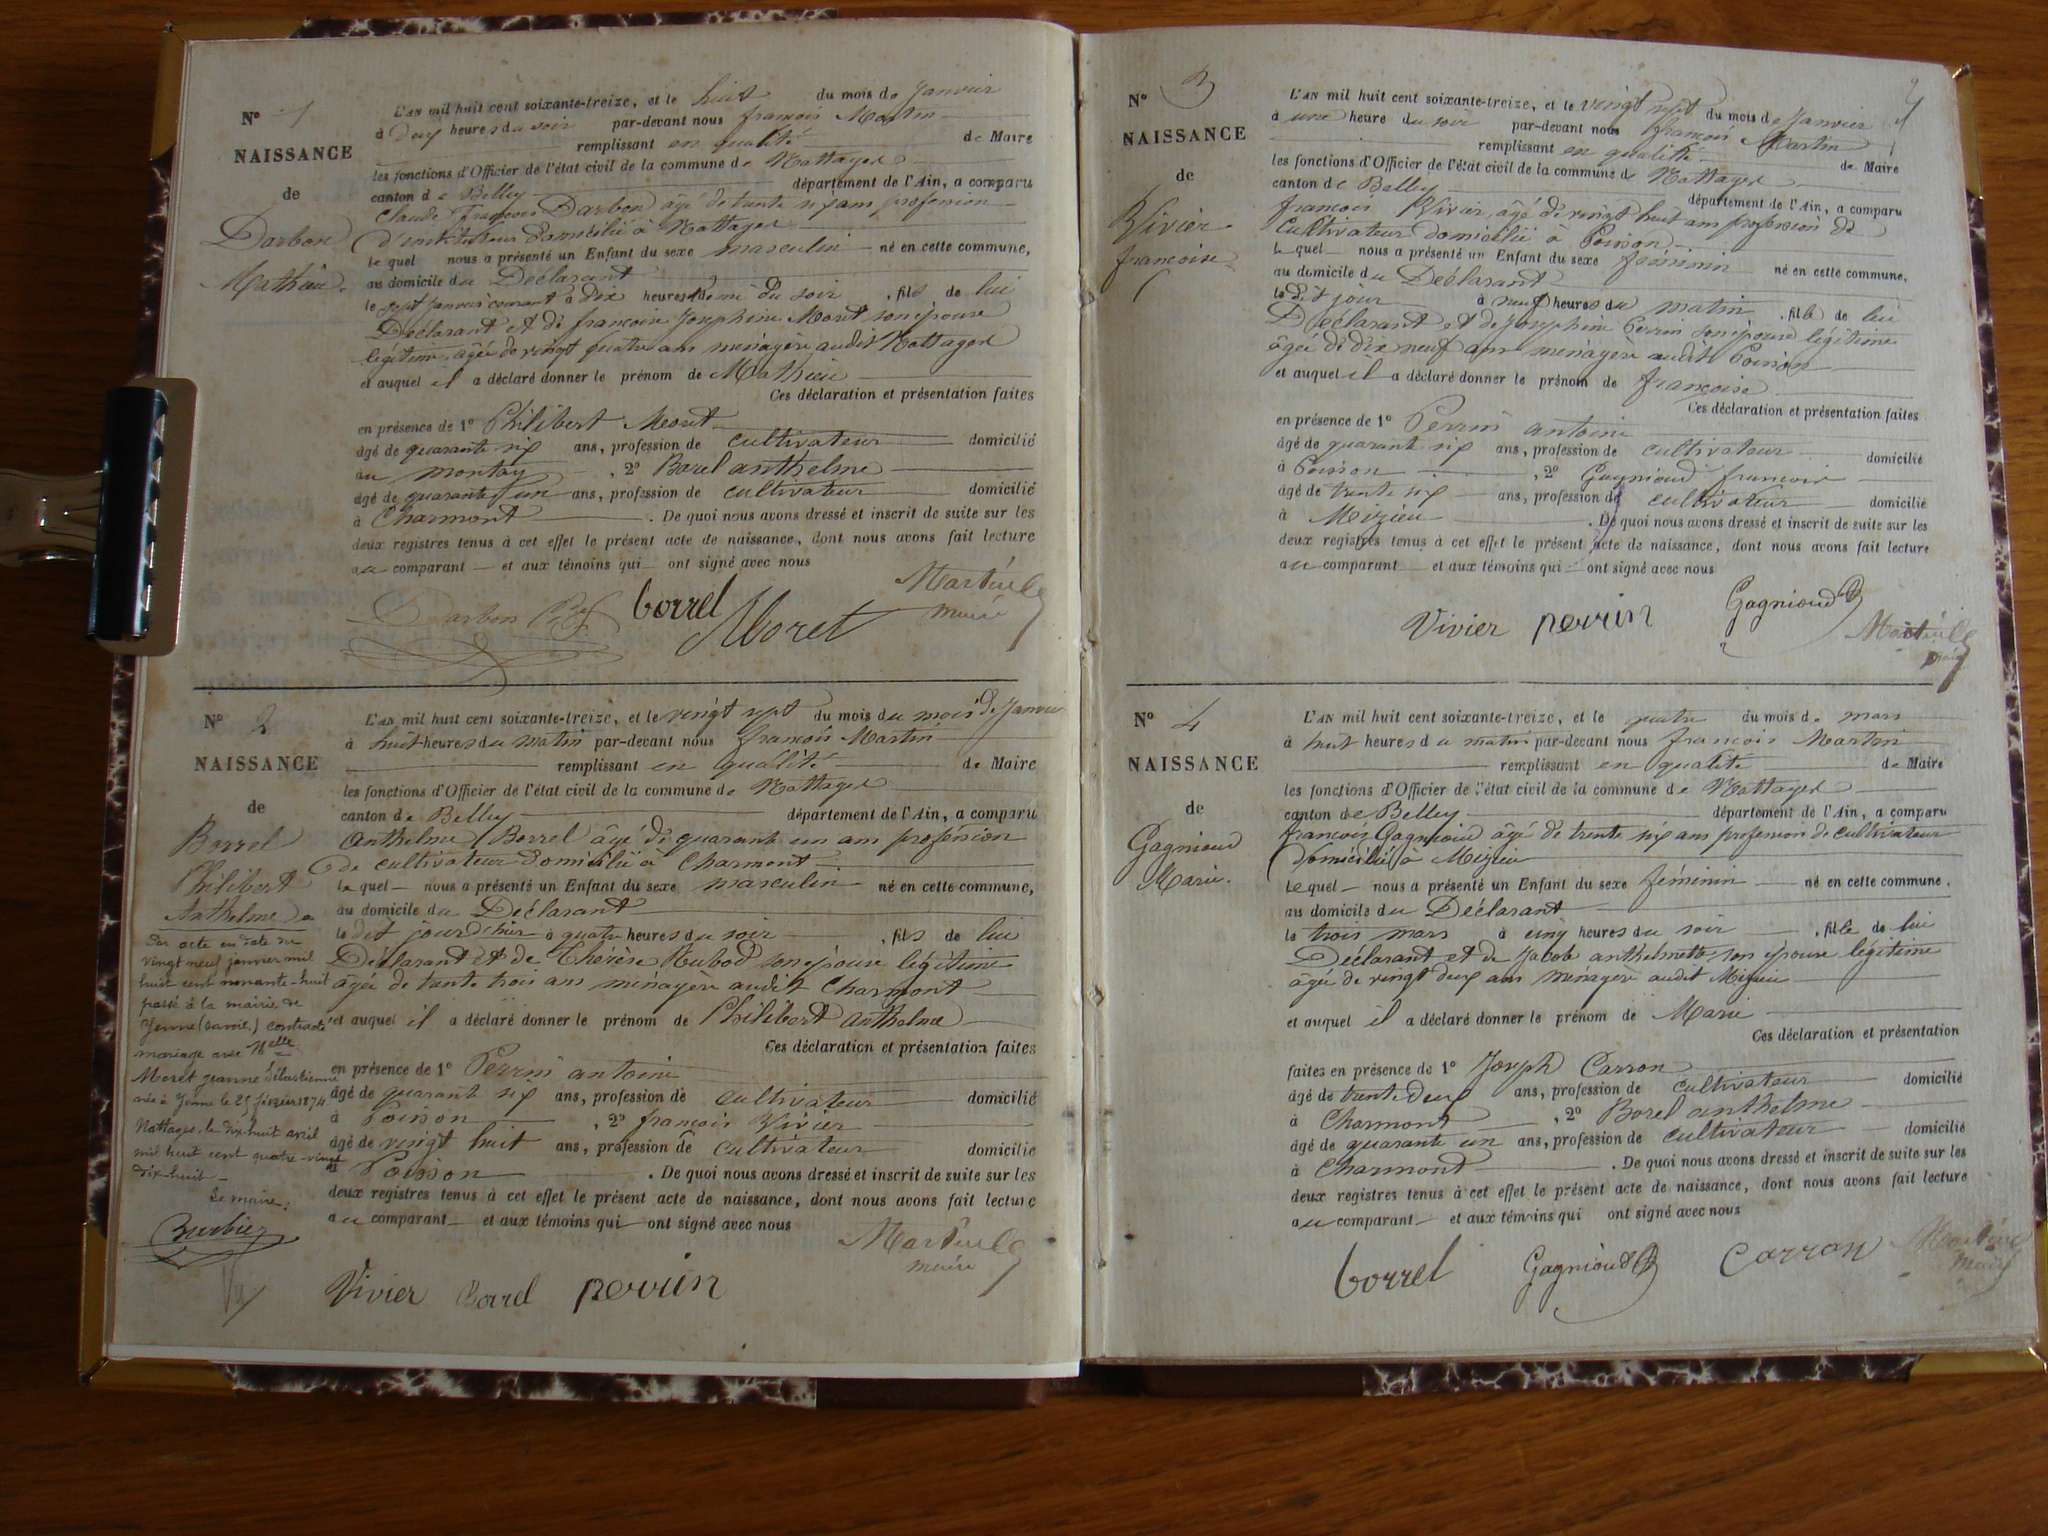 N° 1
NAISSANCE
de
Darbon
Mathieu.
L'AN mil huit cent soixante-treize, et le huit du mois de Janvier
à deux heures du soir par-devant nous françois Martin
remplissant en qualité de Maire
les fonctions d'Officier de l'état civil de la commune de Nattages
canton de Belley département de l'Ain, a comparu
Claude François Darbon âgé de trente six ans profession
d'instituteur domicilié à Nattages
lequel nous a présenté un Enfant du sexe masculin né en cette commune,
au domicile du Déclarant
le sept janvier courant à dix heures demi du soir, fils de lui
Déclarant et de francoise Josephine Moret son épouse
légitime, âgée de vingt quatre ans ménagère audit Nattages
et auquel il a déclaré donner le prénom de Mathieu
Ces déclaration et présentation faites
en présence de 1° Philibert Moret
âgé de quarante six ans, profession de cultivateur domicilié
au montay, 2° Borel anthelme
âgé de quarante un ans, profession de cultivateur domicilié
à Charmont. De quoi nous avons dressé et inscrit de suite sur les
deux registres tenus à cet effet le présent acte de naissance, dont nous avons fait lecture
au comparant et aux témoins qui ont signé avec nous
Darbon borrel Moret Martin
maire
N° 2
NAISSANCE
de
Borrel
Philibert
Anthelme
L'AN mil huit cent soixante-treize, et le vingt sept du mois du mois de Janvier
à huit heures du matin par-devant nous françois Martin
remplissant en qualité de Maire
les fonctions d'Officier de l'état civil de la commune de Nattages
canton de Belley département de l'Ain, a comparu
Anthelme Borrel âgé de quarante un ans profession
de cultivateur domicilié à Charmont
lequel nous a présenté un Enfant du sexe masculin né en cette commune,
au domicile du Déclarant
le dit jour d'hier à quatre heures du soir, fils de lui
Déclarant et de Thérèse Rubod son épouse légitime
âgée de trente trois ans ménagère audit Charmont
et auquel il a déclaré donner le prénom de Philibert Anthelme
Ces déclaration et présentation faites
en présence de 1° Perrin antoine
âgé de quarante six ans, profession de cultivateur domicilié
à Poisson, 2° françois Vivier
âgé de vingt huit ans, profession de cultivateur domicilié
à Poisson. De quoi nous avons dressé et inscrit de suite sur les
deux registres tenus à cet effet le présent acte de naissance, dont nous avons fait lecture
au comparant et aux témoins qui ont signé avec nous
Vivier Borrel perrin Martin
maire
Par acte en date du
vingt neuf janvier mil
huit cent nonante-huit
passé à la mairie de
Yenne (Savoie) contracté
mariage avec Nelle
Moret jeanne Sébastienne
née à Yenne le 25 février 1874
Nattages, le dix-huit avril
mil huit cent quatre-vingt
dix-huit
Le maire:
Barbier
N° 3
NAISSANCE
de
Vivier
francoise
L'AN mil huit cent soixante-treize, et le vingt sept du mois de Janvier
à une heure du soir par-devant nous françois Martin
remplissant en qualité de Maire
les fonctions d'Officier de l'état civil de la commune de Nattages
canton de Belley département de l'Ain, a comparu
françois Vivier, âgé de vingt huit ans profession de
Cultivateur domicilié à Poisson
lequel nous a présenté un Enfant du sexe féminin né en cette commune,
au domicile du Déclarant
le dit jour à neuf heures du matin, fille de lui
Déclarant et de Josephine Perrin son épouse légitime
âgée de dix neuf ans ménagère audit Poisson
et auquel il a déclaré donner le prénom de françoise
Ces déclaration et présentation faites
en présence de 1° Perrin antoine
âgé de quarante six ans, profession de cultivateur domicilié
à Poisson, 2° Gagnioud francois
âgé de trente six ans, profession de cultivateur domicilié
à Mizieu. De quoi nous avons dressé et inscrit de suite sur les
deux registres tenus à cet effet le présent acte de naissance, dont nous avons fait lecture
au comparant et aux témoins qui ont signé avec nous
Vivier perrin Gagnioud Martin
maire
N° 4
NAISSANCE
de
Gagnioud
Marie.
L'AN mil huit cent soixante-treize, et le quatre du mois de mars
à huit heures du matin par-devant nous françois Martin
remplissant en qualité de Maire
les fonctions d'Officier de l'état civil de la commune de Nattages
canton de Belley département de l'Ain, a comparu
françois Gagnioud âgé de trente six ans profession de cultivateur
domicilié à Mizieu
Lequel nous a présenté un Enfant du sexe féminin né en cette commune,
au domicile du Déclarant
le trois mars à cinq heures du soir, fille de lui
Déclarant et de Jacob anthelmette son épouse légitime
âgée de vingt deux ans ménagère audit Mizieu
et auquel il a déclaré donner le prénom de Marie
Ces déclaration et présentation
faites en présence de 1° Joseph Carron
âgé de trente deux ans, profession de cultivateur domicilié
à Charmont, 2° Borel anthelme
âgé de quarante un ans, profession de cultivateur domicilié
à Charmont. De quoi nous avons dressé et inscrit de suite sur les
deux registres tenus à cet effet le présent acte de naissance, dont nous avons fait lecture
au comparant et aux témoins qui ont signé avec nous
borrel Gagnioud Carron Martin
maire